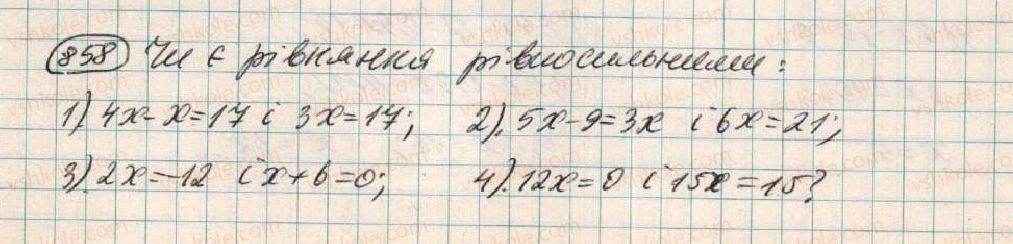 858 Чи є рівняння рівносильними:
1) 4x-x=17 і 3x=17; 2) 5x-9=3x і 6x=21;
3) 2x=-12 і x+6=0; 4) 12x=0 і 15x=15?